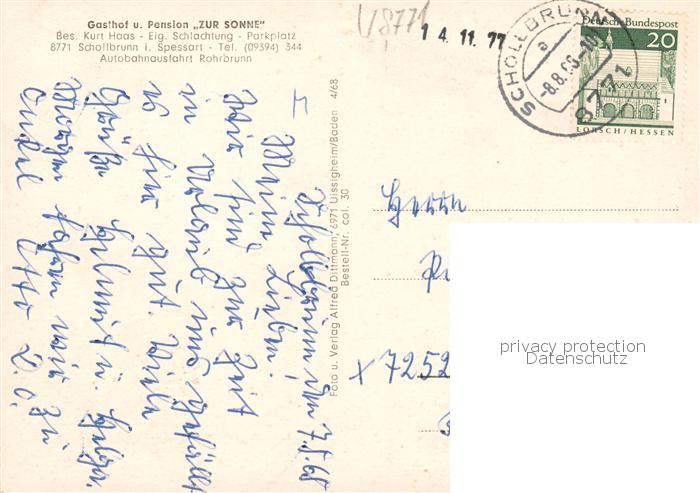 Gasthof u. Pension „ZUR SONNE"
Bes. Kurt Haas - Eig. Schlachtung - Parkplatz
8771 Schollbrunn i. Spessart - Tel. (09394) 344
Autobahnausfahrt Rohrbrunn
V8771
1 4. 11. 77
SCHOLLBRUNN
a
-8.8.68-10
8771
Deutsche Bundespost
20
LORSCH/HESSEN
Schollbrunn den 7.8.68
Meine Lieben!
Wir sind zur Zeit
in Urlaub und gefällt
es hier gut. Viele
Grüße Helmut u. Helga.
Morgen fahren wir zu
Onkel Otto
Foto u. Verlag Alfred Dittmann, 6971 Uissigheim/Baden 4/68
Bestell-Nr. col. 30
Herrn
x 7252
privacy protection
Datenschutz